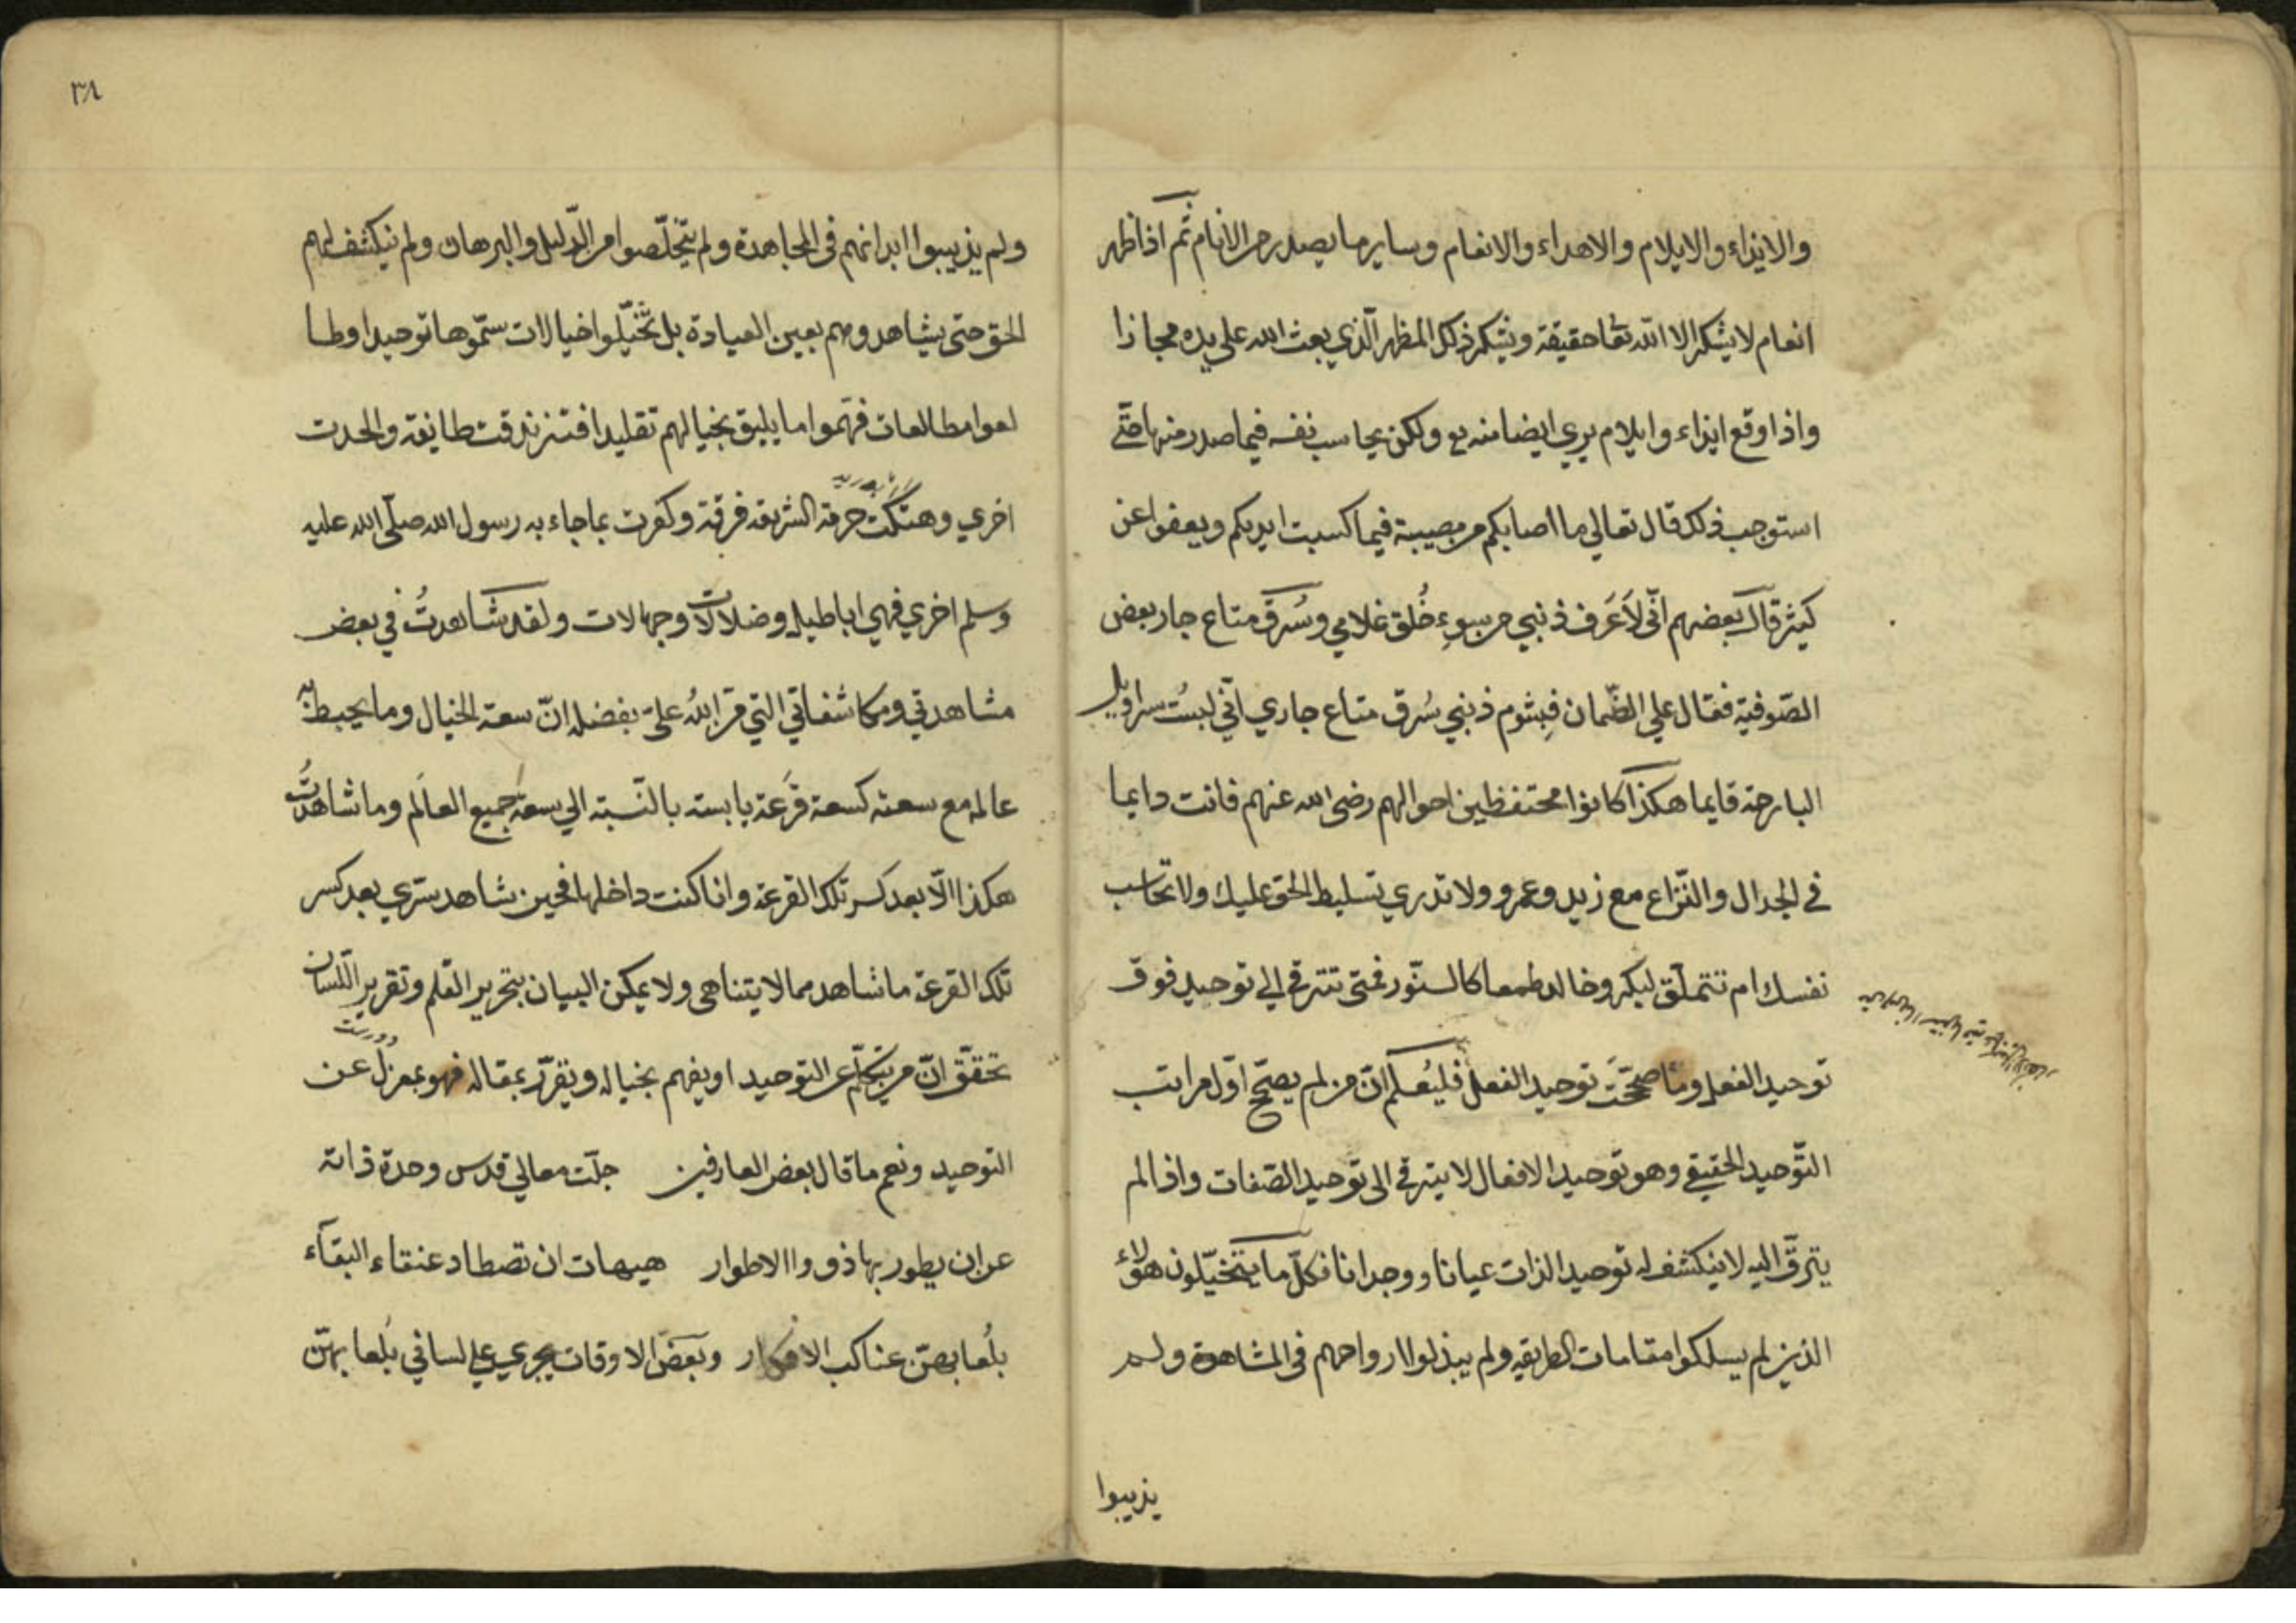 والايذاء والايلام والاهداء والانعام وساير ما يصدر من الانام ثم اذا ظهر
انعام لا يشكر الا الله تعا حقيقة ويشكر ذلك المظهر الّذي بعث الله على يده مجازا
واذا وقع ايذاء وايلام يري ايضا منه تع ولكن يحاسب نفسه فيما صدر منها حتّي
استوجب ذلك قال تعالي ما اصابكم من مصيبة فيما كسبت ايديكم ويعفوا عن
كثير قال بعضهم انّى لاَعَرف ذنبي من سوءِ خُلق غلامي وسُرق متاع جار بعض
الصّوفية فقال علي الضّمان فبشوم ذنبي سُرق متاع جاري انّي لبستُ سراويل
البارحة قايما هكذا كانوا محتفظين احوالهم رضى الله عنهم فانت دايما
في الجدال والنّزاع مع زيد وعمرو ولا تدري تسليط الحق عليك ولا تحاسب
نفسك ام تتملّق لبكر وخالد طمعا كالسنّور فمتى تترقي الي توحيد فوق
توحيد الفعل وما صحّحَت توحيد الفعل فليُعلم انّ من لم يصحّح اوّل مراتب
التّوحيد الحقيقي وهو توحيد الافعال لا يترقي الى توحيد الصّفات واذا لم
يترقّ اليه لا ينكشف له توحيد الذات عيانا ووجدانا فكلّ ما يتخيّلون هؤلاء
الذين لم يسلكوا مقامات الطريقه ولم يبذلوا ارواحهم في المشاهدة ولم
يذيبوا
٣٨
ولم يذيبوا ابدانهم في المجاهدة ولم يتخلّصوا من الدّليل والبرهان ولم ينكشف لهم
الحق حتى يشاهدوهم بعين العيادة بل تخيّلوا خيالات سمّوها توحيدا وطا
لعوا مطالعات فهّموا ما يليق بخيالهم تقليدا فتزندقت طايفة والحدت
اخري وهتكت حرمة الشريعه فرقة وكفرت بما جاء به رسول الله صلّى الله عليه
وسلم اخري فهي اباطيل وضلالات وجهالات ولقد شاهدتُ في بعض
مشاهدتي ومكاشفاتي التي منّ اللهُ علىّ بفضله انّ سعة الخيال وما يحيط به
عالمه مع سعته كسعة قرعة يابسة بالنّسبة الي سعة جميع العالَم وما شاهدتُ
هكذا الّا بعد كسر تلك القرعة وانا كنت داخلها فحين شاهد سرّي بعد كسر
تلك القرعة ما شاهد مما لا يتناهى ولا يمكن البيان بتحرير القلم وتقرير اللّسان
تحقّق انّ من يتكلّم عن التوحيد او يفهم بخياله ويقرّر بمقاله فهو بمعزل عن
التوحيد ونعم ما قال بعض العارفين جلّت معالي قدس وحدة ذاته
عن ان يطور بها ذووا الاطوار هيهات ان تصطاد عنقاء البقآء
بلُعابهنّ عناكب الافكار وبعض الاوقات يجري علي لساني بلُعابهنّ